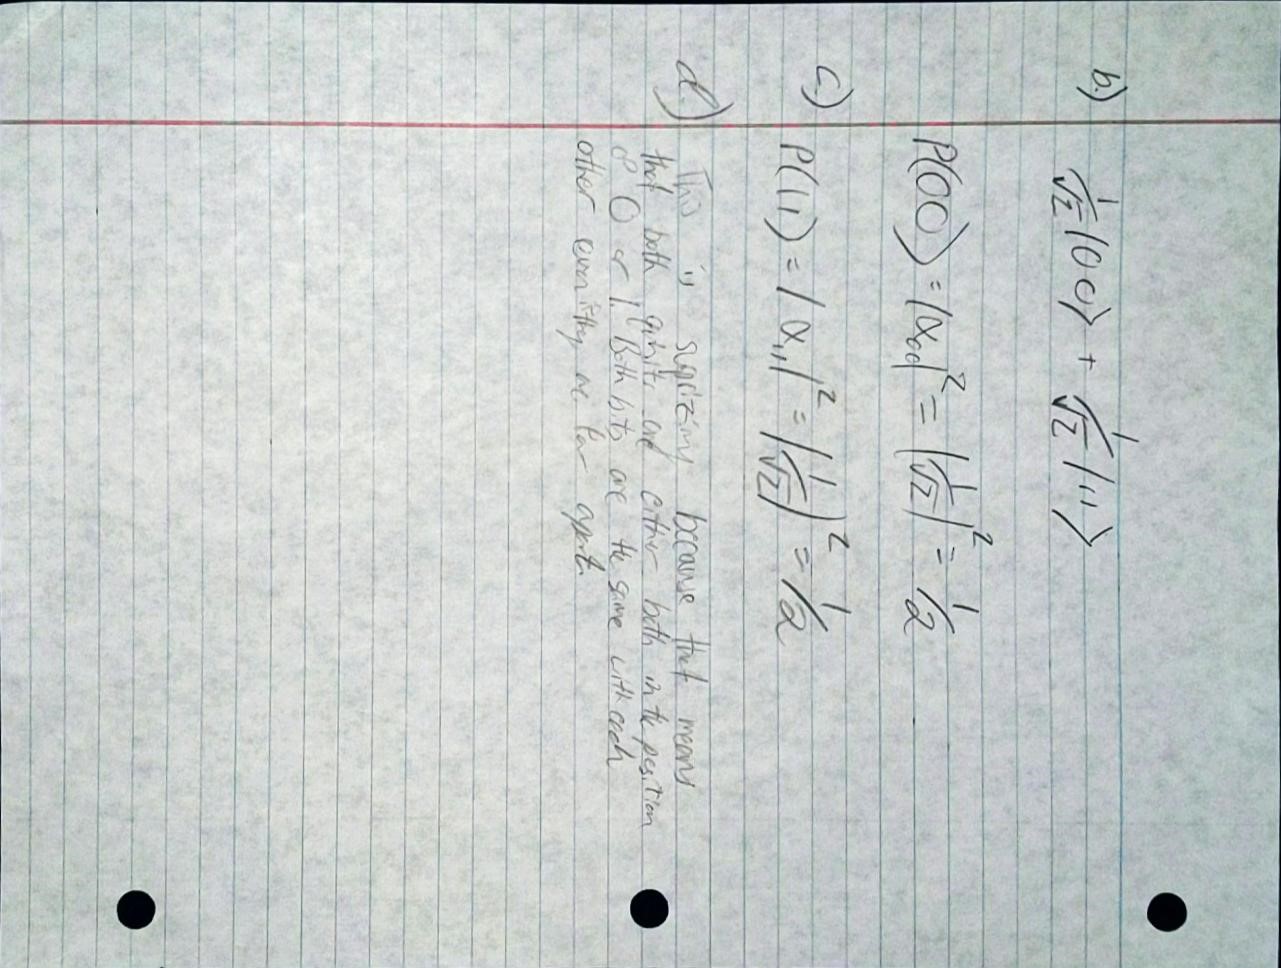 b.) 1/√2 |00> + 1/√2 |11>
P(00) = |α₀₀|² = |1/√2|² = 1/2
c.) P(11) = |α₁₁|² = |1/√2|² = 1/2
d.) This is suprizing because that means
that both qubits are either both in the position
of 0 or 1. Both bits are the same with each
other even if they are far apart.